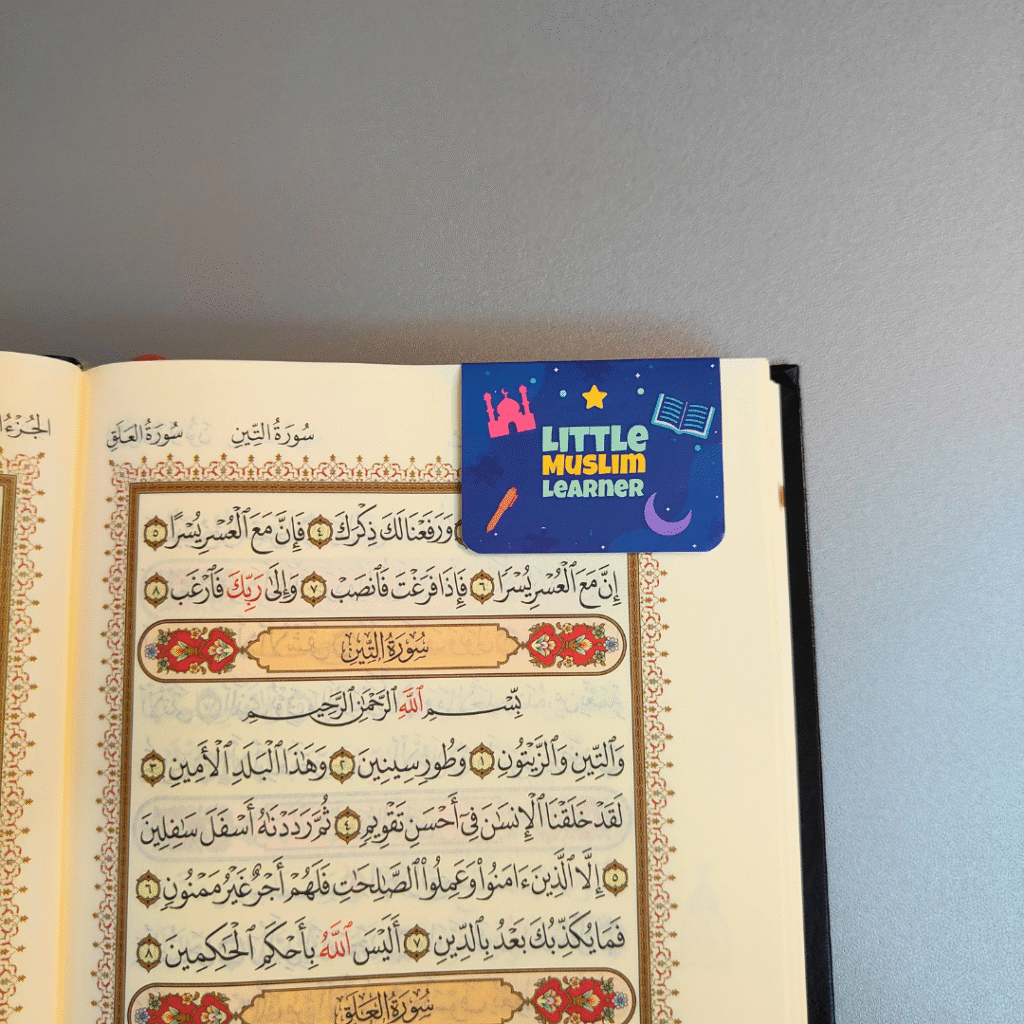 الجُزْءُ
سُورَةُ التِّينِ سُورَةُ العَلَقِ
LITTLE
MUSLIM
LEARNER
وَرَفَعْنَا لَكَ ذِكْرَكَ ٤ فَإِنَّ مَعَ ٱلْعُسْرِ يُسْرًا ٥
إِنَّ مَعَ ٱلْعُسْرِ يُسْرًا ٦ فَإِذَا فَرَغْتَ فَٱنصَبْ ٧ وَإِلَىٰ رَبِّكَ فَٱرْغَب ٨
سُورَةُ التِّينِ
بِسْمِ ٱللَّهِ ٱلرَّحْمَٰنِ ٱلرَّحِيمِ
وَٱلتِّينِ وَٱلزَّيْتُونِ ١ وَطُورِ سِينِينَ ٢ وَهَٰذَا ٱلْبَلَدِ ٱلْأَمِينِ ٣
لَقَدْ خَلَقْنَا ٱلْإِنسَٰنَ فِىٓ أَحْسَنِ تَقْوِيمٍ ٤ ثُمَّ رَدَدْنَٰهُ أَسْفَلَ سَٰفِلِينَ
٥ إِلَّا ٱلَّذِينَ ءَامَنُوا۟ وَعَمِلُوا۟ ٱلصَّٰلِحَٰتِ فَلَهُمْ أَجْرٌ غَيْرُ مَمْنُونٍ ٦
فَمَا يُكَذِّبُكَ بَعْدُ بِٱلدِّينِ ٧ أَلَيْسَ ٱللَّهُ بِأَحْكَمِ ٱلْحَٰكِمِينَ ٨
سُورَةُ العَلَقِ